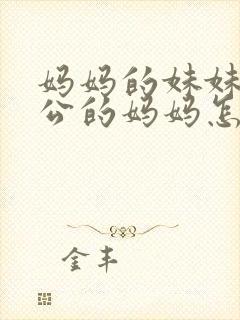 妈妈的妹妹
公的妈妈怎
金丰